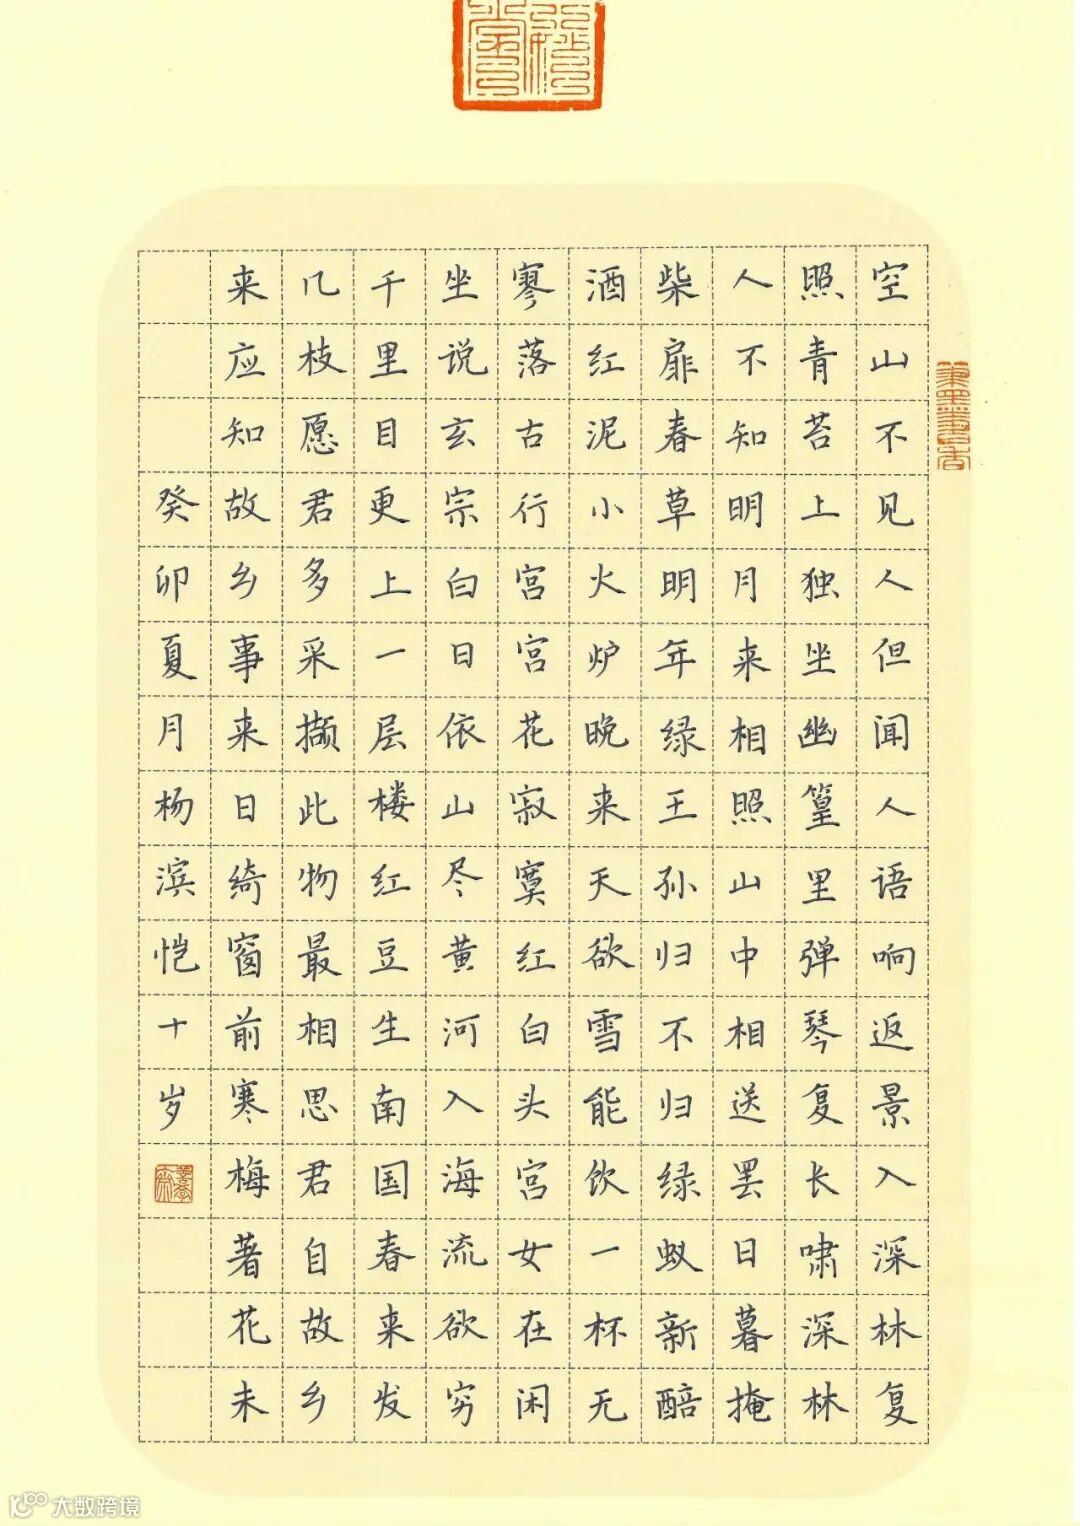 空山不见人但闻人语响返景入深林复
照青苔上独坐幽篁里弹琴复长啸深林
人不知明月来相照山中相送罢日暮掩
柴扉春草明年绿王孙归不归绿蚁新醅
酒红泥小火炉晚来天欲雪能饮一杯无
寥落古行宫宫花寂寞红白头宫女在闲
坐说玄宗白日依山尽黄河入海流欲穷
千里目更上一层楼红豆生南国春来发
几枝愿君多采撷此物最相思君自故乡
来应知故乡事来日绮窗前寒梅著花未
癸卯夏月杨滨恺十岁
笔墨书香
大数跨境